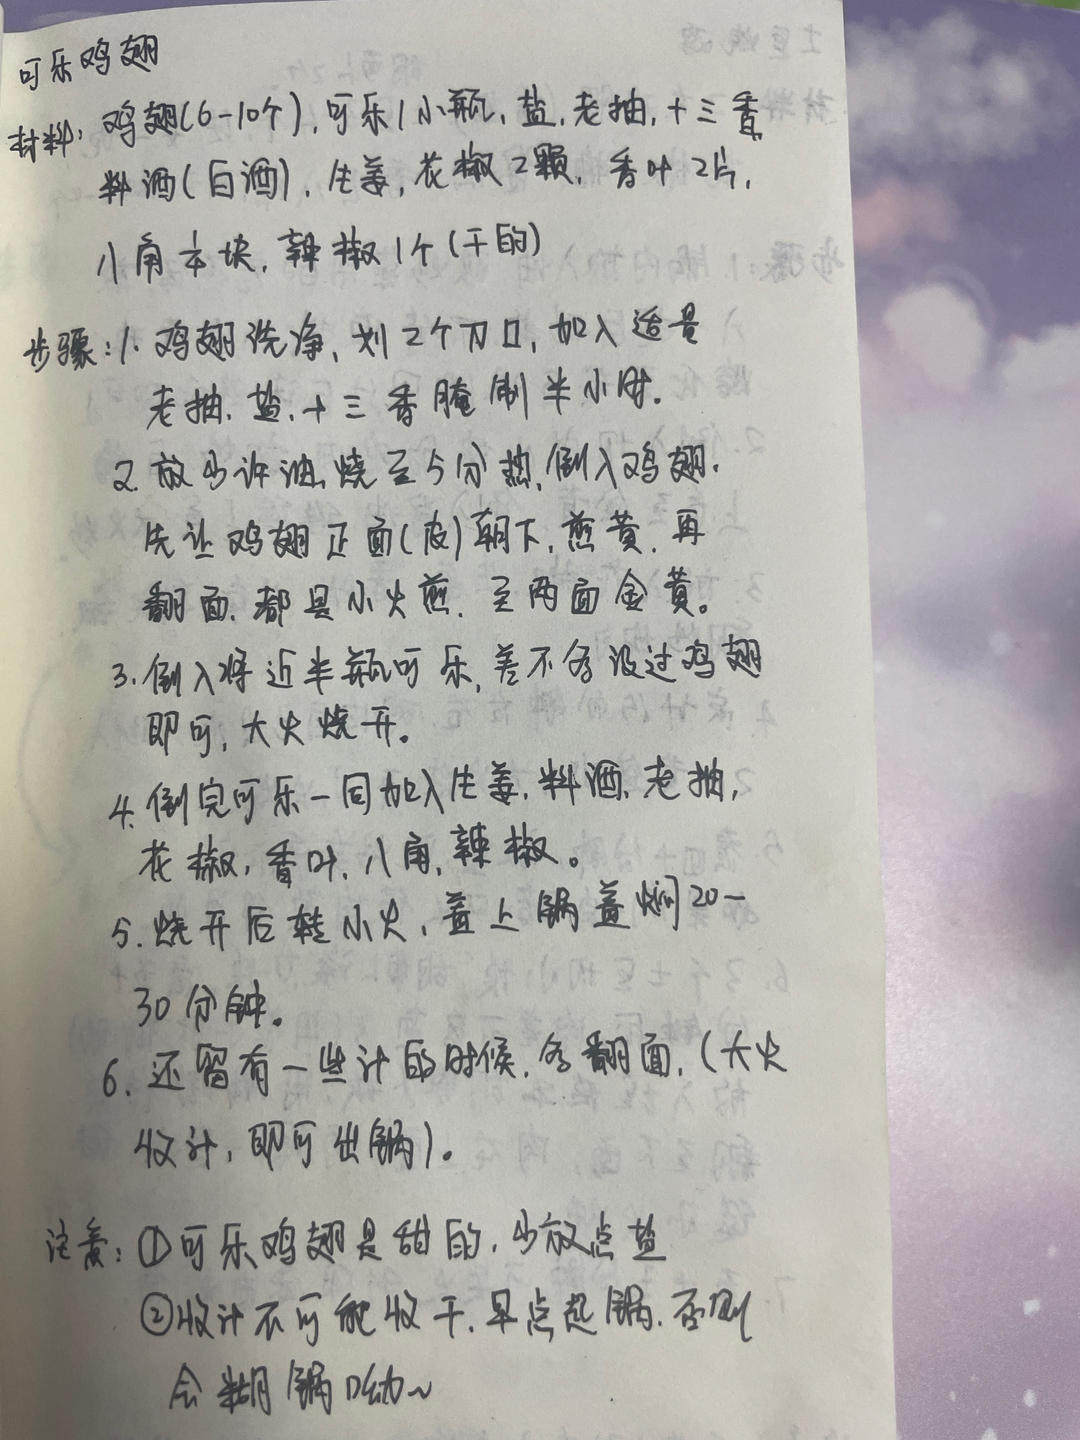 可乐鸡翅
材料: 鸡翅(6-10个), 可乐1小瓶, 盐, 老抽, 十三香
料酒(白酒), 生姜, 花椒2颗, 香叶2片,
八角半块, 辣椒1个(干的)
步骤: 1. 鸡翅洗净, 划2个刀口, 加入适量
老抽. 盐. 十三香腌制半小时.
2. 放少许油烧至5分热, 倒入鸡翅.
先让鸡翅正面(皮)朝下, 煎黄. 再
翻面. 都是小火煎. 至两面金黄。
3. 倒入将近半瓶可乐, 差不多没过鸡翅
即可, 大火烧开。
4. 倒完可乐一同加入生姜. 料酒. 老抽,
花椒, 香叶, 八角, 辣椒。
5. 烧开后转小火, 盖上锅盖焖20-
30分钟。
6. 还留有一些汁的时候, 多翻面, (大火
收汁, 即可出锅)。
注意: ①可乐鸡翅是甜的, 少放点盐
②收汁不可能收干. 早点起锅. 否则
会糊锅呦~